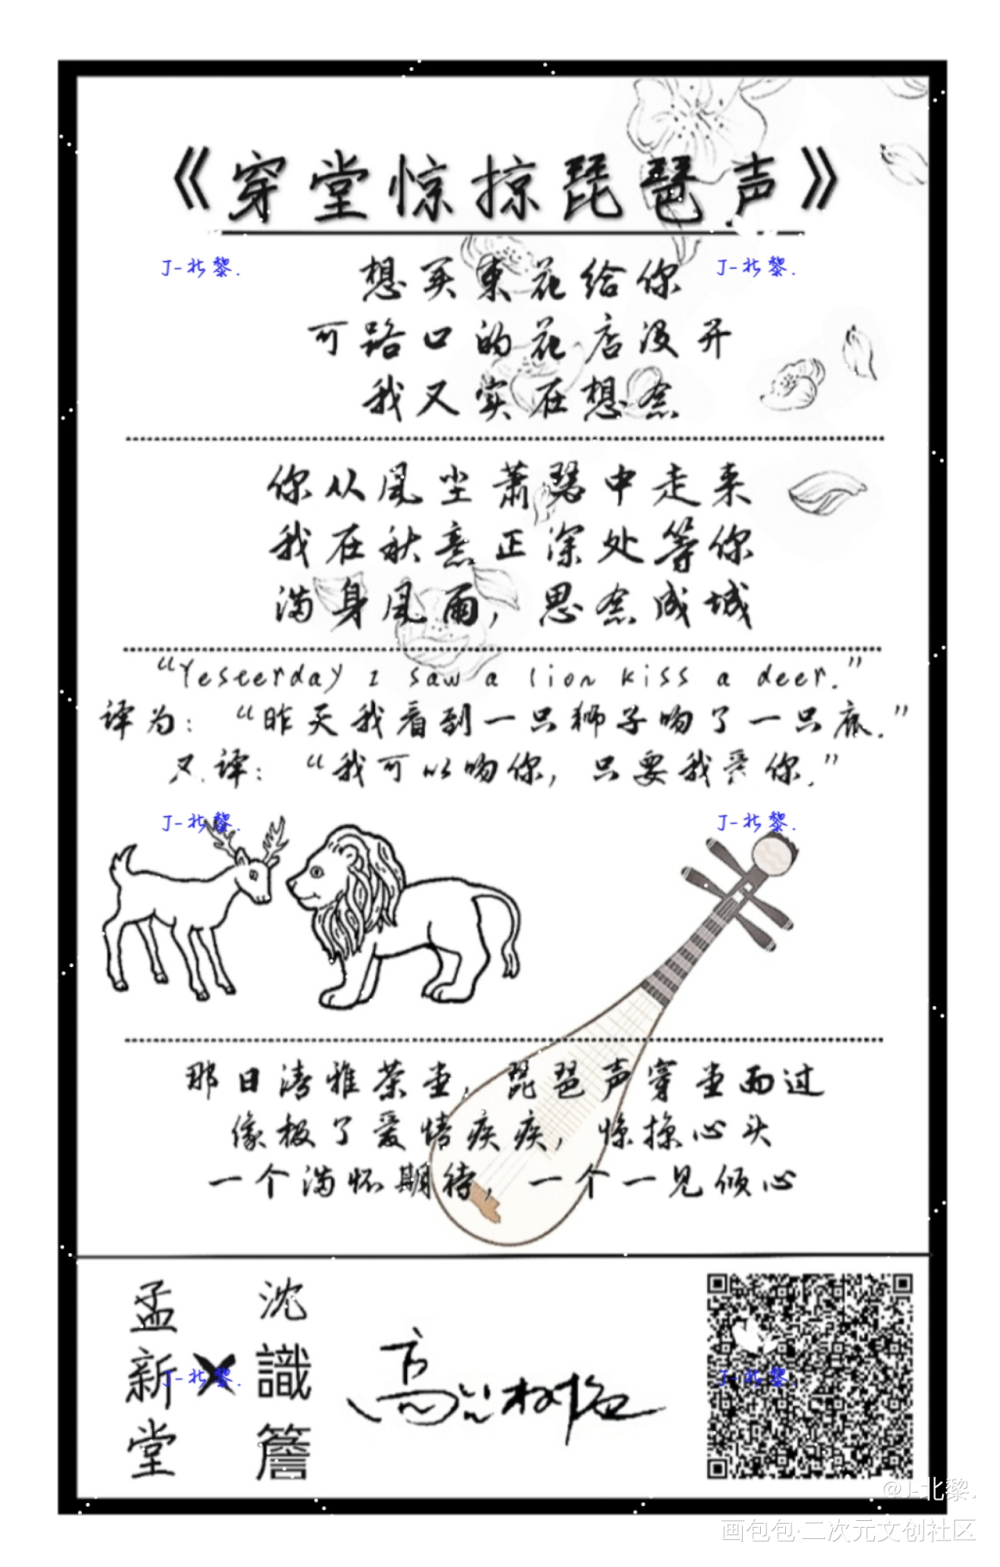 《穿堂惊掠琵琶声》
J-北黎.
J-北黎.
想买束花给你
可路口的花店没开
我又实在想念
你从风尘萧瑟中走来
我在秋意正深处等你
满身风雨，思念成城
“Yesterday I saw a lion kiss a deer.”
译为：“昨天我看到一只狮子吻了一只鹿.”
又译：“我可以吻你，只要我爱你.”
J-北黎.
J-北黎.
那日清雅茶堂，琵琶声穿堂而过
像极了爱情疾疾，惊掠心头
一个满怀期待，一个一见倾心
孟新堂
×
沈識簷
J-北黎.
J-北黎.
@J-北黎.
画包包·二次元文创社区